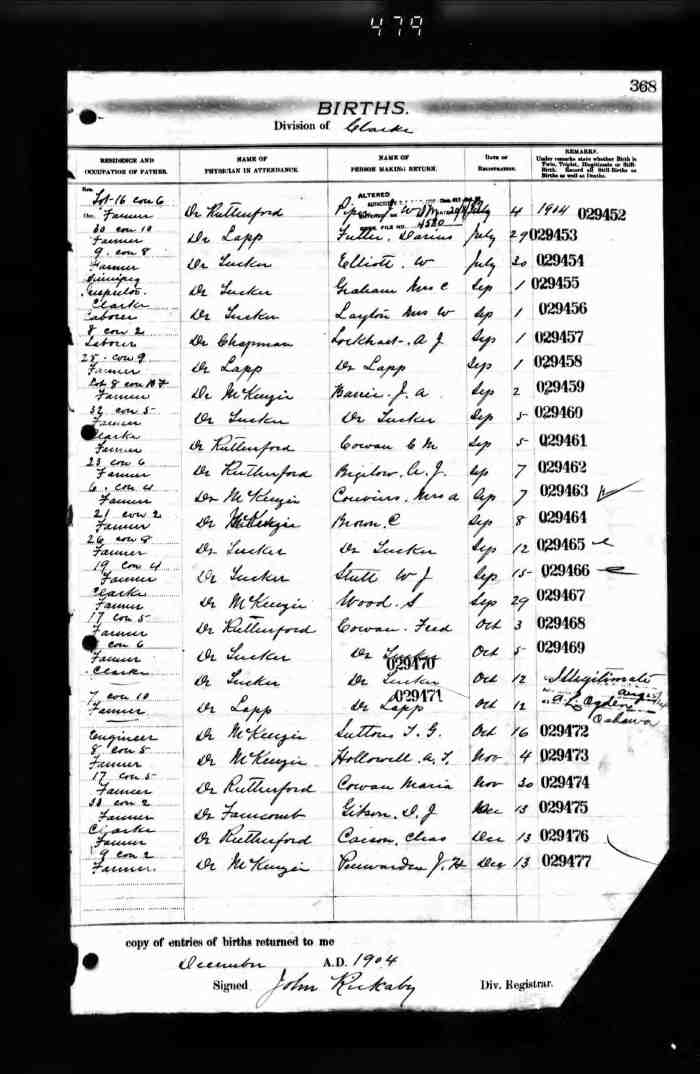 479
368
BIRTHS.
Division of Clarke
RESIDENCE AND OCCUPATION OF FATHER.
NAME OF PHYSICIAN IN ATTENDANCE.
NAME OF PERSON MAKING RETURN.
DATE OF REGISTRATION.
REMARKS. Under remarks state whether Birth is Twin, Triplet, Illegitimate or Still-Birth. Record all Still-Births as Births as well as Deaths.
ALTERED
FILE NO. 4580
Lot-16 con 6
Farmer Dr Rutherford July 4 1904 029452
30 con 10
Farmer Dr Lapp Fuller, Darius July 29 029453
9. con 8
Farmer Dr Tucker Elliott. W July 30 029454
Winnipeg
Inspector Dr Tucker Graham Mrs C Sep 1 029455
Clarke
Laborer Dr Tucker Layton Mrs W Sp 1 029456
8 con 2
Laborer Dr Chapman Lockhart. A J Sep 1 029457
28. con 9
Farmer Dr Lapp Dr Lapp Sep 1 029458
Lot 8 con
Farmer Dr McKenzie Barrie. J. A. Sep 2 029459
32 con 5
Farmer Dr Tucker Dr Tucker Sep 5 029460
Clarke
Farmer Dr Rutherford Cowan C M Sep 5 029461
23 con 6
Farmer Dr Rutherford Bigelow. A. J. Sep 7 029462
6. con 4
Farmer Dr McKenzie Mrs A Sep 7 029463
21 con 2
Farmer Dr McKenzie Brown. C Sep 8 029464
26 con 8
Farmer Dr Tucker Dr Tucker Sep 12 029465
19 con 4
Farmer Dr Tucker Stutt W J Sep 15 029466
Clarke
Farmer Dr McKenzie Wood. S Sep 29 029467
17 con 5
Farmer Dr Rutherford Cowan. Fred Oct 3 029468
con 6
Farmer Dr Tucker Dr Tucker Oct 5 029469
029470
Clarke Dr Tucker Dr Tucker Oct 12 Illegitimate
029471
7 con 10
Farmer Dr Lapp Dr Lapp Oct 12
Ogden
Oshawa
Engineer Dr McKenzie Sutton T. G. Oct 16 029472
8 con 5
Farmer Dr McKenzie Hollowell. A. T. Nov 4 029473
17 con 5
Farmer Dr Rutherford Cowan Maria Nov 30 029474
33 con 2
Farmer Dr Farncomb Gibson. D. J Dec 13 029475
Clarke
Farmer Dr Rutherford Carson, Chas Dec 13 029476
9 con 2
Farmer. Dr McKenzie Penwarden J. H Dec 13 029477
copy of entries of births returned to me
December A.D. 1904
Signed John Rickaby Div. Registrar.